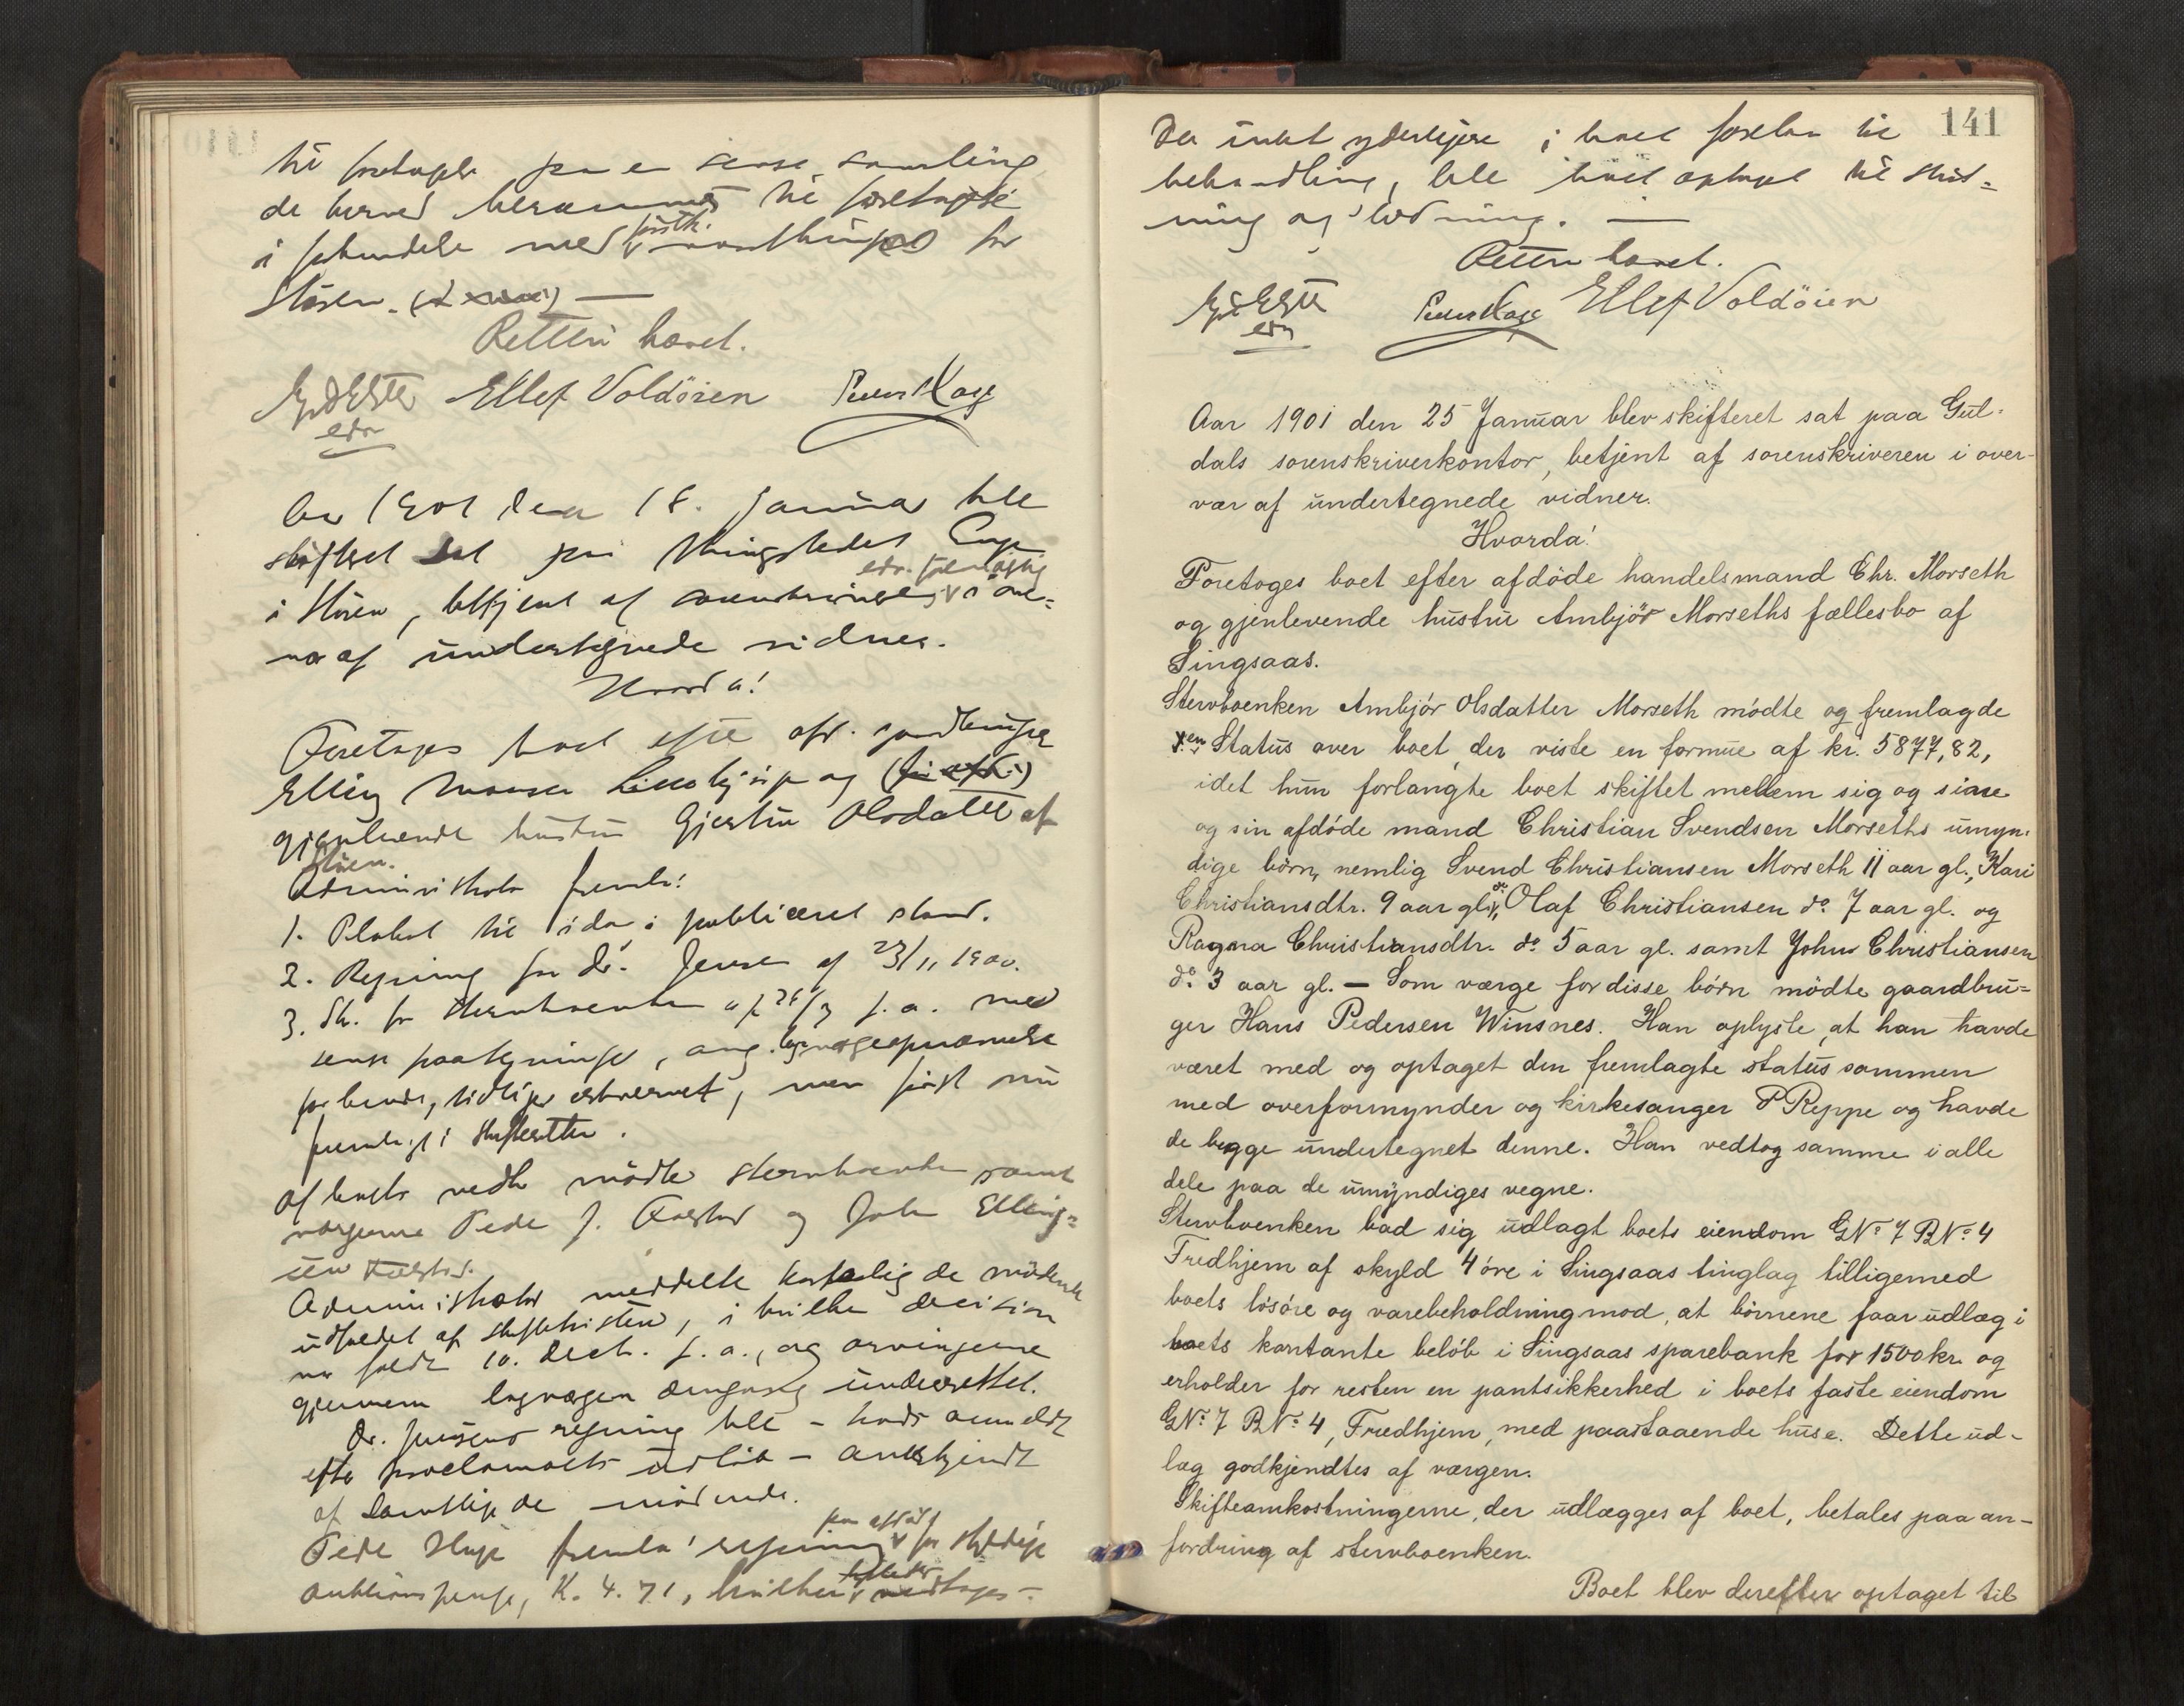 til foretagelse paa en senere samling
de herved berammes til foretagelse
i forbindelse med førstk. maanedsting for
Støren.
Retten hævet.
Ellef Voldöien Peder Kage
Aar 1901 den 18. januar blev
skifteret sat paa thingstedet Engen
i Stören, betjent af sorenskriveren edr. fuldmægtig i over-
vær af undertegnede vidner.
Hvorda!
Foretoges boet efter afd. gaardbruger
Elling og
gjenlevende hustru Gjertru Olsdatter af
Stören.
Administrator freml:
1. Plakat til idag i publiceret stand.
2. Regning fra Dr. Jensen af 23/11 1900.
3. Sk. fra stervboenken af f. a. med
senere paategninger, ang. lagværgeopnævnelse
for hende, tidligere erhvervet, men først nu
fremlagt i skifteretten.
Af boets vedk. mödte stervboenken samt
værgerne Peder J. og John Elling-
sen
Administrator meddelte de mödende
udfaldet af skifte, i hvilken decision
var faldt 10. Decb. f. a., og arvingerne
gjennem lagværgen underrettet.
Dr. Jensens regning blev - hvds anmeldt
efter proclamaets udlöb - anerkjendt
af samtlige de mödende.
Peder Hage freml: regning for skyldige
auktionspenge, K. 4.71, hvilken vedtoges.
141
Da intet yderligere i boet forelaa til
behandling, blev boet optaget til slut-
ning og lodning.
Retten hævet.
Peder Kage Ellef Voldöien
Aar 1901 den 25 Januar blev skifteret sat paa Gul-
dals sorenskriverkontor, betjent af sorenskriveren i over-
vær af undertegnede vidner.
Hvorda!
Foretoges boet efter afdöde handelsmand Chr. Morseth
og gjenlevende hustru Ambjör Morseths fællesbo af
Singsaas.
Stervboenken Ambjör Olsdatter Morseth mödte og fremlagde
en Status over boet, der viste en formue af kr. 5877,82,
idet hun forlangte boet skiftet mellem sig og sine
og sin afdöde mand Christian Svendsen Morseths umyn-
dige börn, nemlig Svend Christiansen Morseth 11 aar gl., Kari
Christiansdtr. do 9 aar gl., Olaf Christiansen do 7 aar gl. og
Ragna Christiansdtr. do 5 aar gl. samt John Christiansen
do 3 aar gl. — Som værge for disse börn mödte gaardbru-
ger Hans Pedersen Winsnes. Han oplyste, at han havde
været med og optaget den fremlagte status sammen
med overformynder og kirkesanger P Reppe og havde
de begge undertegnet denne. Han vedtog samme i alle
dele paa de umyndiges vegne.
Stervboenken bad sig udlagt boets eiendom GNo 7 BNo 4
Fredhjem af skyld 4 öre i Singsaas tinglag tilligemed
boets lösöre og varebeholdning mod, at börnene faar udlæg i
boets kontante belöb i Singsaas sparebank for 1500 kr. og
erholder for resten en pantsikkerhed i boets faste eiendom
GNo 7 BNo 4, Fredhjem, med paastaaende huse. Dette ud-
læg godkjendtes af værgen.
Skifteomkostningerne, der udlægges af boet, betales paa an-
fordring af stervboenken.
Boet blev derefter optaget til